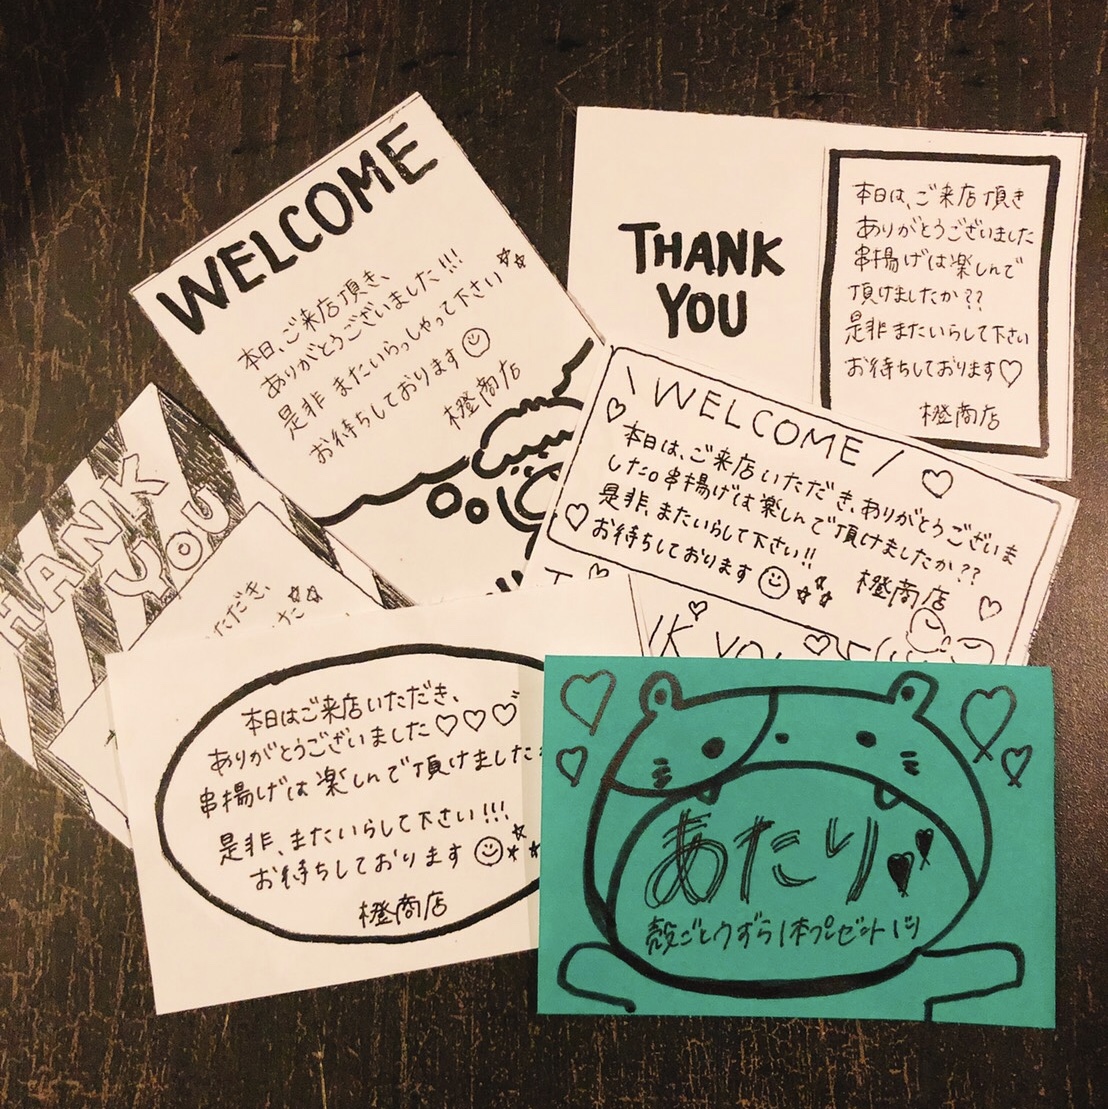 WELCOME
本日、ご来店頂き、
ありがとうございました!!!
是非 またいらっしゃって下さい
お待ちしております
橙商店
THANK
YOU
本日は、ご来店頂き
ありがとうございました
串揚げは楽しんで
頂けましたか??
是非 またいらして下さい
お待ちしております♡
橙商店
\ WELCOME /
本日は、ご来店いただき、ありがとうございま
した。串揚げは楽しんで頂けましたか??
是非、またいらして下さい!!
お待ちしております
橙商店
HANK
YOU
ただき、
た
IK YOU
本日はご来店いただき、
ありがとうございました♡♡♡
串揚げは楽しんで頂けました
是非、またいらして下さい!!!
お待ちしております
橙商店
あたり
殻ごとうずら1本プレゼント